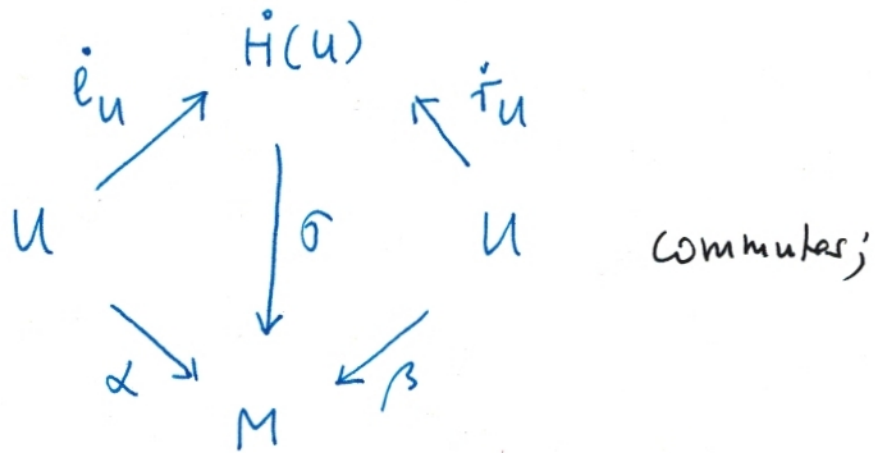 Ḣ(U)
ℓ̇_U ṙ_U
U σ U commutes;
α β
M